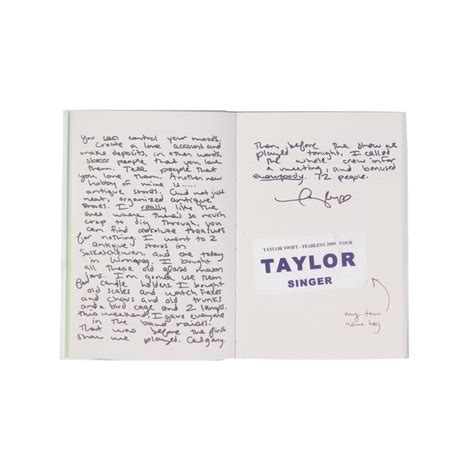 You can control your moods,
create a love account and
make deposits, in other words,
show people that you love
them. Tell people that
you love them. Another new
hobby of mine is.....
antique stores. And not just
neat, organized antique
stores. I really like the
ones where there's so much
crap to dig through, you
can find absolute treasures
for nothing. I went to 2
antique stores in
Saskatchewan and one today
in Winnipeg. I bought
all these old glass mason
jars. I'm gonna use them
for candle holders. I bought
old scales and watch faces
and chairs and old trunks
and a bird cage and 2 lamps.
This weekend, I gave everyone
in the band raises.
That was before the first
show we played. Calgary.
Then, before the show we
played tonight, I called
the whole crew in for
a meeting, and bonused
everybody. 72 people.
TAYLOR SWIFT - FEARLESS 2009 TOUR
TAYLOR
SINGER
my tour
name tag